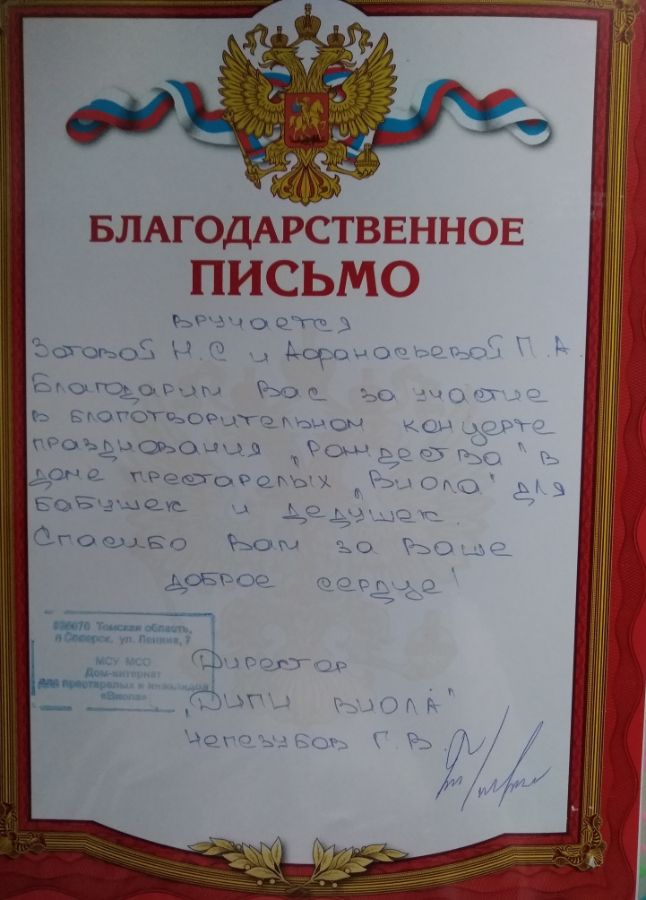 БЛАГОДАРСТВЕННОЕ
ПИСЬМО
вручается
Зотовой Н.С и Афанасьевой П.А.
Благодарим Вас за участие
в благотворительном концерте
празднования „Рождества" в
доме престарелых „Виола" для
бабушек и дедушек.
Спасибо Вам за Ваше
доброе сердце!
636070 Томская область,
г. Северск, ул. Ленина, 7
МСУ МСО
Дом-интернат
для престарелых и инвалидов
«Виола»
Директор
„ДИПИ ВИОЛА"
Чепезубов Г.В.